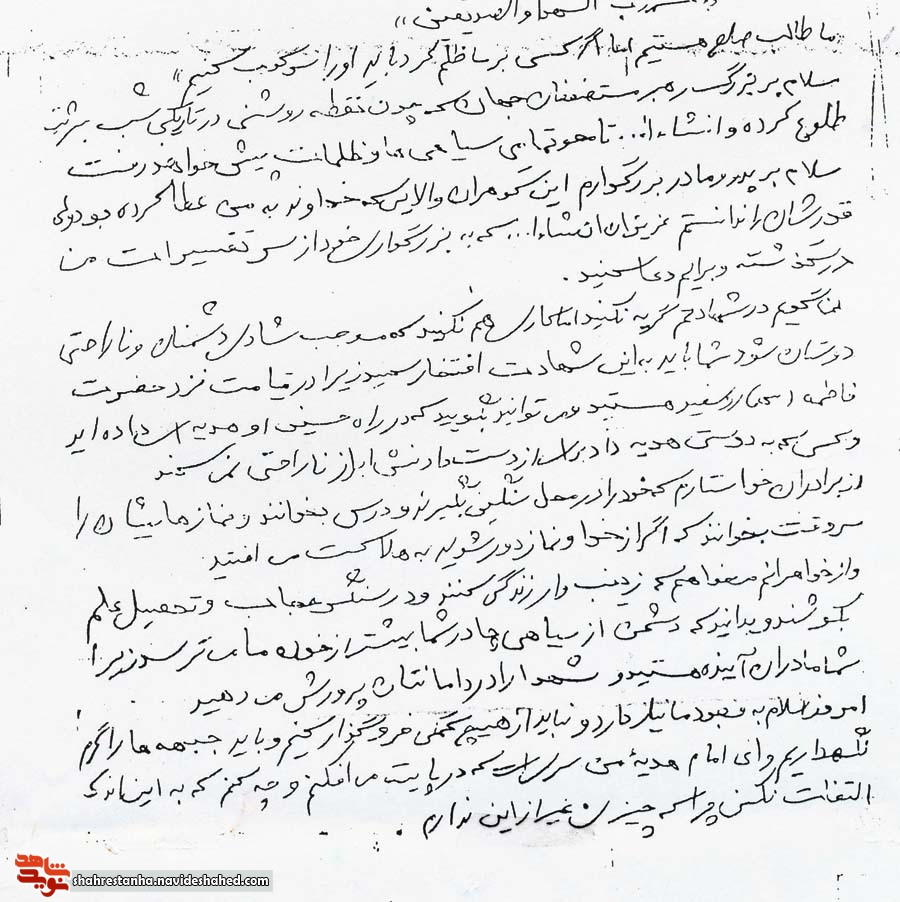 رب الشهدا والصدیقین»
ما طالب صلح هستیم اما اگر کسی بر ما ظلم کرد باید او را سرکوب کنیم»
سلام بر بزرگ رهبر مستضعفان جهان که چون نقطه روشنی در تاریکی شب
طلوع کرده و انشاءا... تا محو تمامی سیاهی ها و ظلمات پیش خواهد رفت
سلام بر پدر و مادر بزرگوارم این گوهران والایی که خداوند به من عطا کرده بود ولی
قدرشان را ندانستم عزیزان ان شاءا... که به بزرگواری خود از سر تقصیرات من
در گذشته و برایم دعا کنید.
نمی گویم در شهادتم گریه نکنید اما کاری هم نکنید که موجب شادی دشمنان و ناراحتی
دوستان شود شما باید به این شهادت افتخار کنید زیرا در قیامت نزد حضرت
فاطمه (س) رو سفید هستید و می توانید بگویید که در راه حسین او هدیه ای داده اید
و کسی که به دوستی هدیه داد برای از دست دادنش ابراز ناراحتی نمی کند
از برادران خواستارم که خود را در محل سنگین بگیرند و درس بخوانند و نمازهایشان را
سر وقت بخوانند که اگر از خدا و نماز دور شوید به هلاکت می افتید
و از خواهرانم میخواهم که زینب وار زندگی کنند و در سنگر حجاب و تحصیل علم
بکوشند و بدانید که دشمن از سیاهی چادر شما بیشتر از خون ما می ترسد زیرا
شما مادران آینده هستید و شهدا را در دامانتان پرورش می دهید
امروز اسلام به وجود ما نیاز دارد و نباید از هیچ کمکی فروگذار کنیم و باید جبهه ها را گرم
نگهداریم و ای امام هدیهٔ من سری است که در پایت می افکنم و چه کنم که به این اندک
التفات نکنی چرا که چیزی غیر از این ندارم.
شاهد
نوید
shahrestanha.navideshahed.com